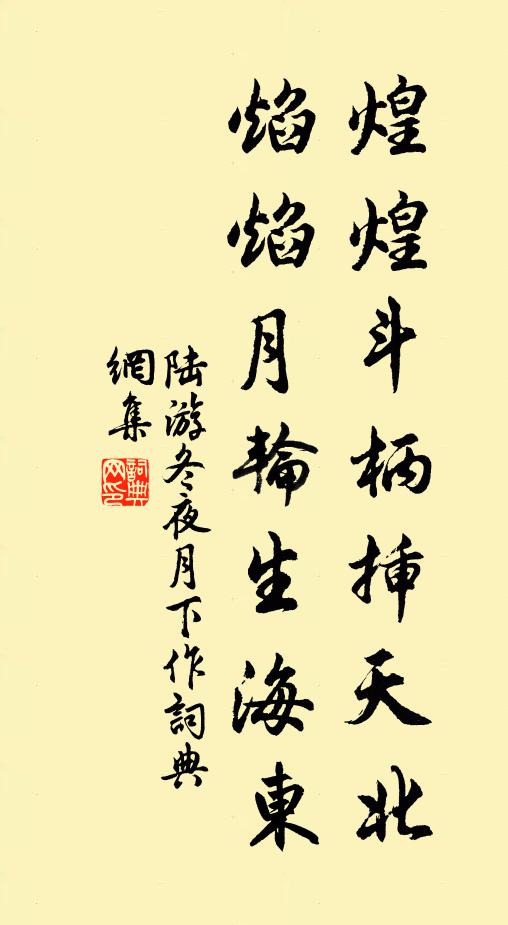 煌煌斗柄挿天北
焰焰月輪生海東
陆游冬夜月下作詞典
網集
詞典
网印